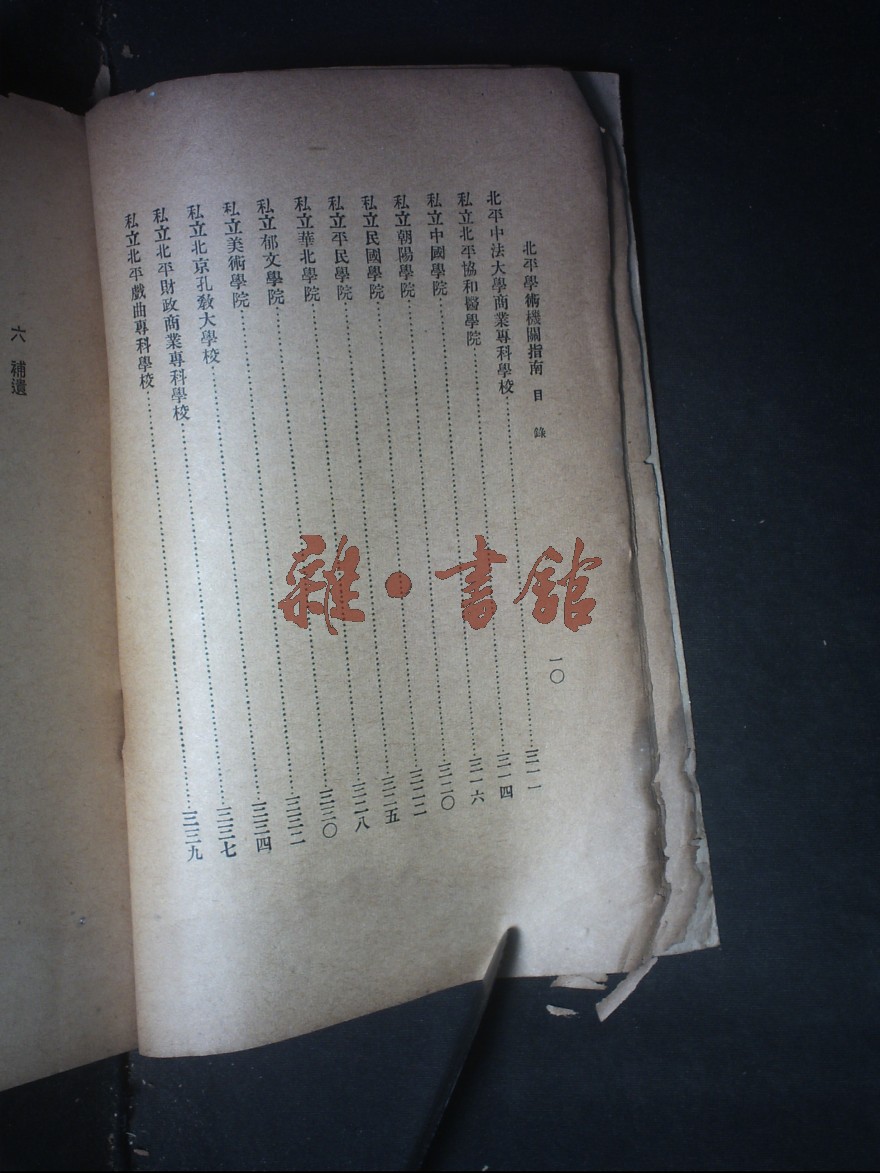 北平學術機關指南 目錄 一〇
北平中法大學商業專科學校……三一一
私立北平協和醫學院……三一四
私立中國學院……三一六
私立朝陽學院……三二〇
私立民國學院……三二二
私立平民學院……三二五
私立華北學院……三二八
私立郁文學院……三三〇
私立美術學院……三三二
私立北京孔敎大學校……三三四
私立北平財政商業專科學校……三三七
私立北平戲曲專科學校……三三九
六 補遺
雜·書館